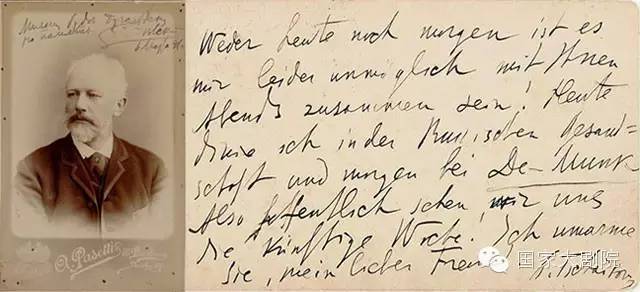 на память
A. Pasetti
Weder heute noch morgen ist es
mir leider unmöglich mit Ihnen
Abends zusammen sein! Heute
dinie ich in der Russischen Gesand=
schaft und morgen bei De-Munk
Also hoffentlich sehen wir uns
die künftige Woche. Ich umarme
Sie, mein lieber
国家大剧院